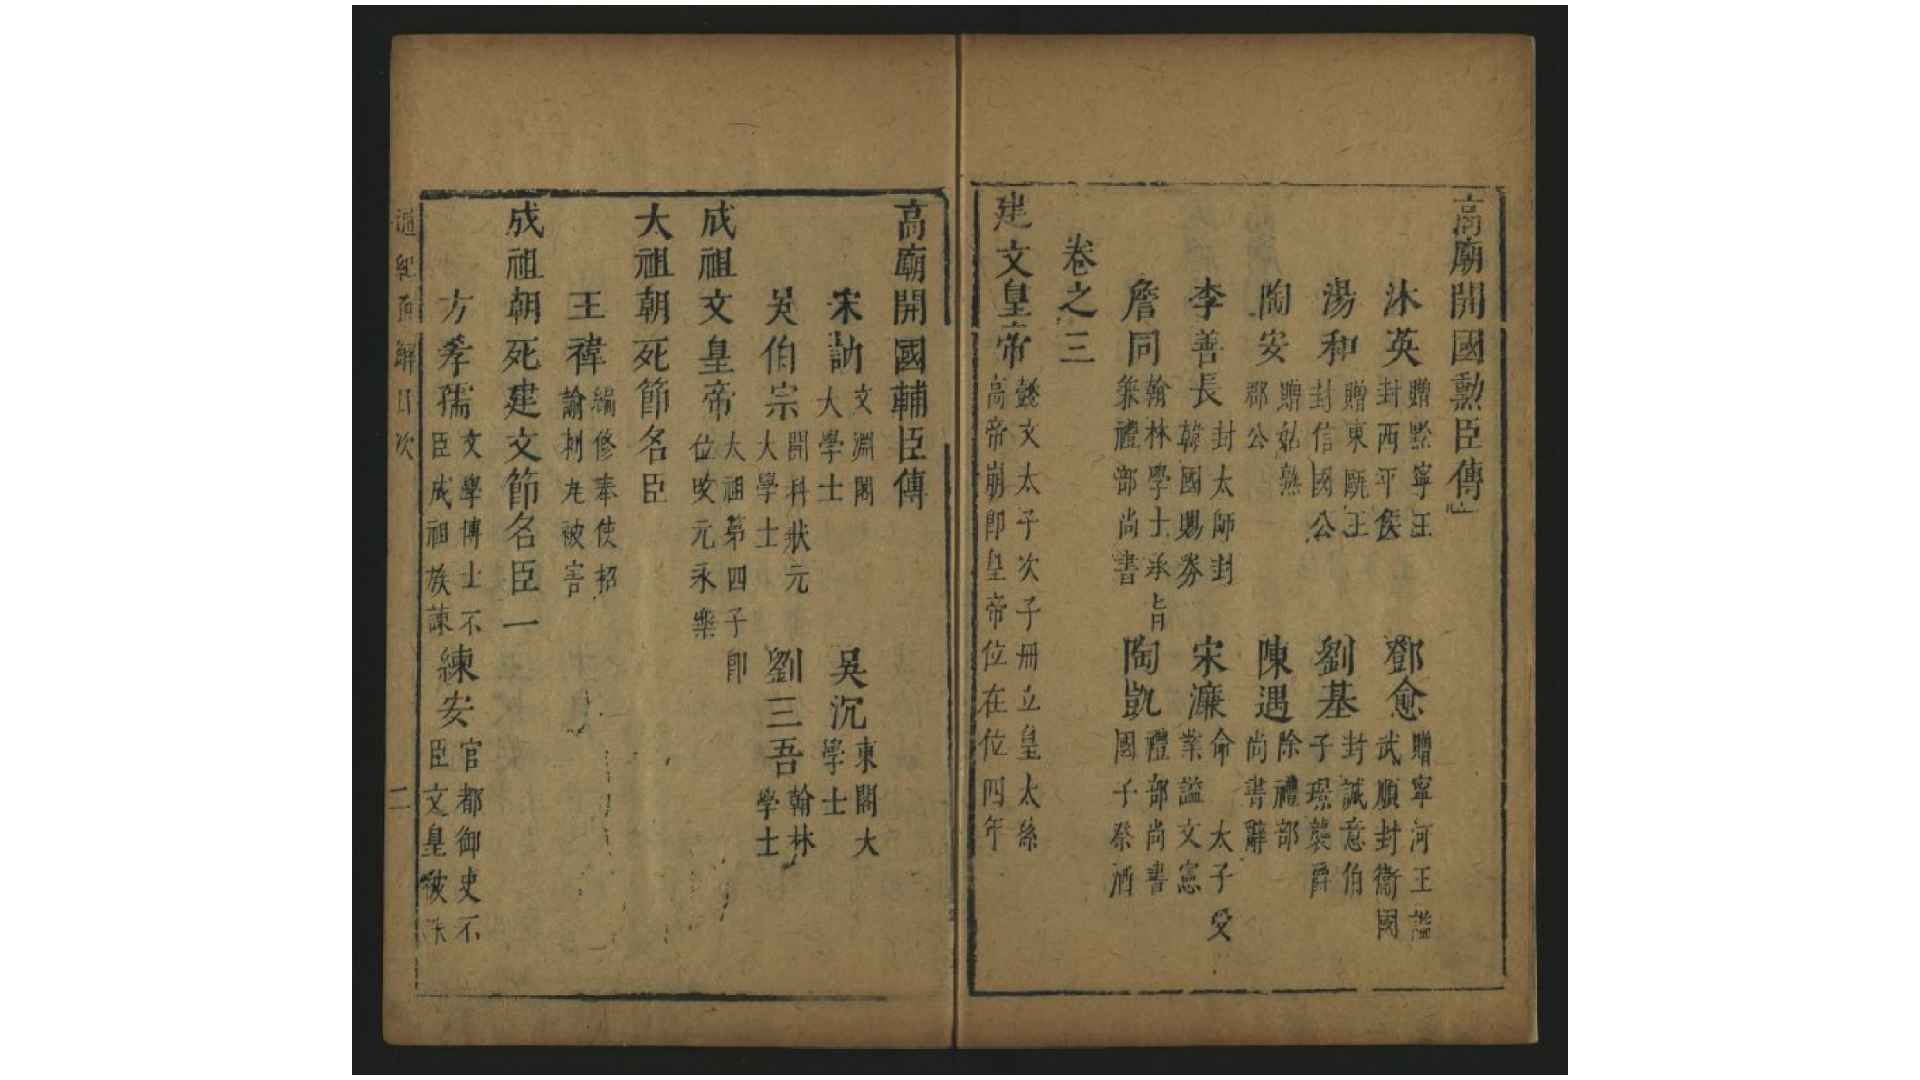 高廟開國勳臣傳
沐英 贈黔寧王封西平侯 鄧愈 贈寧河王謚武順封衞國
湯和 贈東甌王封信國公 劉基 封誠意伯子璟襲爵
陶安 贈姑熟郡公 陳遇 除禮部尚書辭
李善長 封太師封韓國賜券 宋濂 命太子受業謚文憲
詹同 翰林學士承旨兼禮部尚書 陶凱 禮部尚書國子祭酒
卷之三
建文皇帝 懿文太子次子冊立皇太孫高帝崩即皇帝位在位四年
高廟開國輔臣傳
宋訥 文淵閣大學士 吳沉 東閣大學士
吳伯宗 開科狀元大學士 劉三吾 翰林學士
成祖文皇帝 大祖第四子即位改元永樂
大祖朝死節名臣
王禕 編修奉使招諭 被害
成祖朝死建文節名臣一
方孝孺 文學博士不臣成祖族 練安 官都御史不臣文皇被誅
紀 目次
二